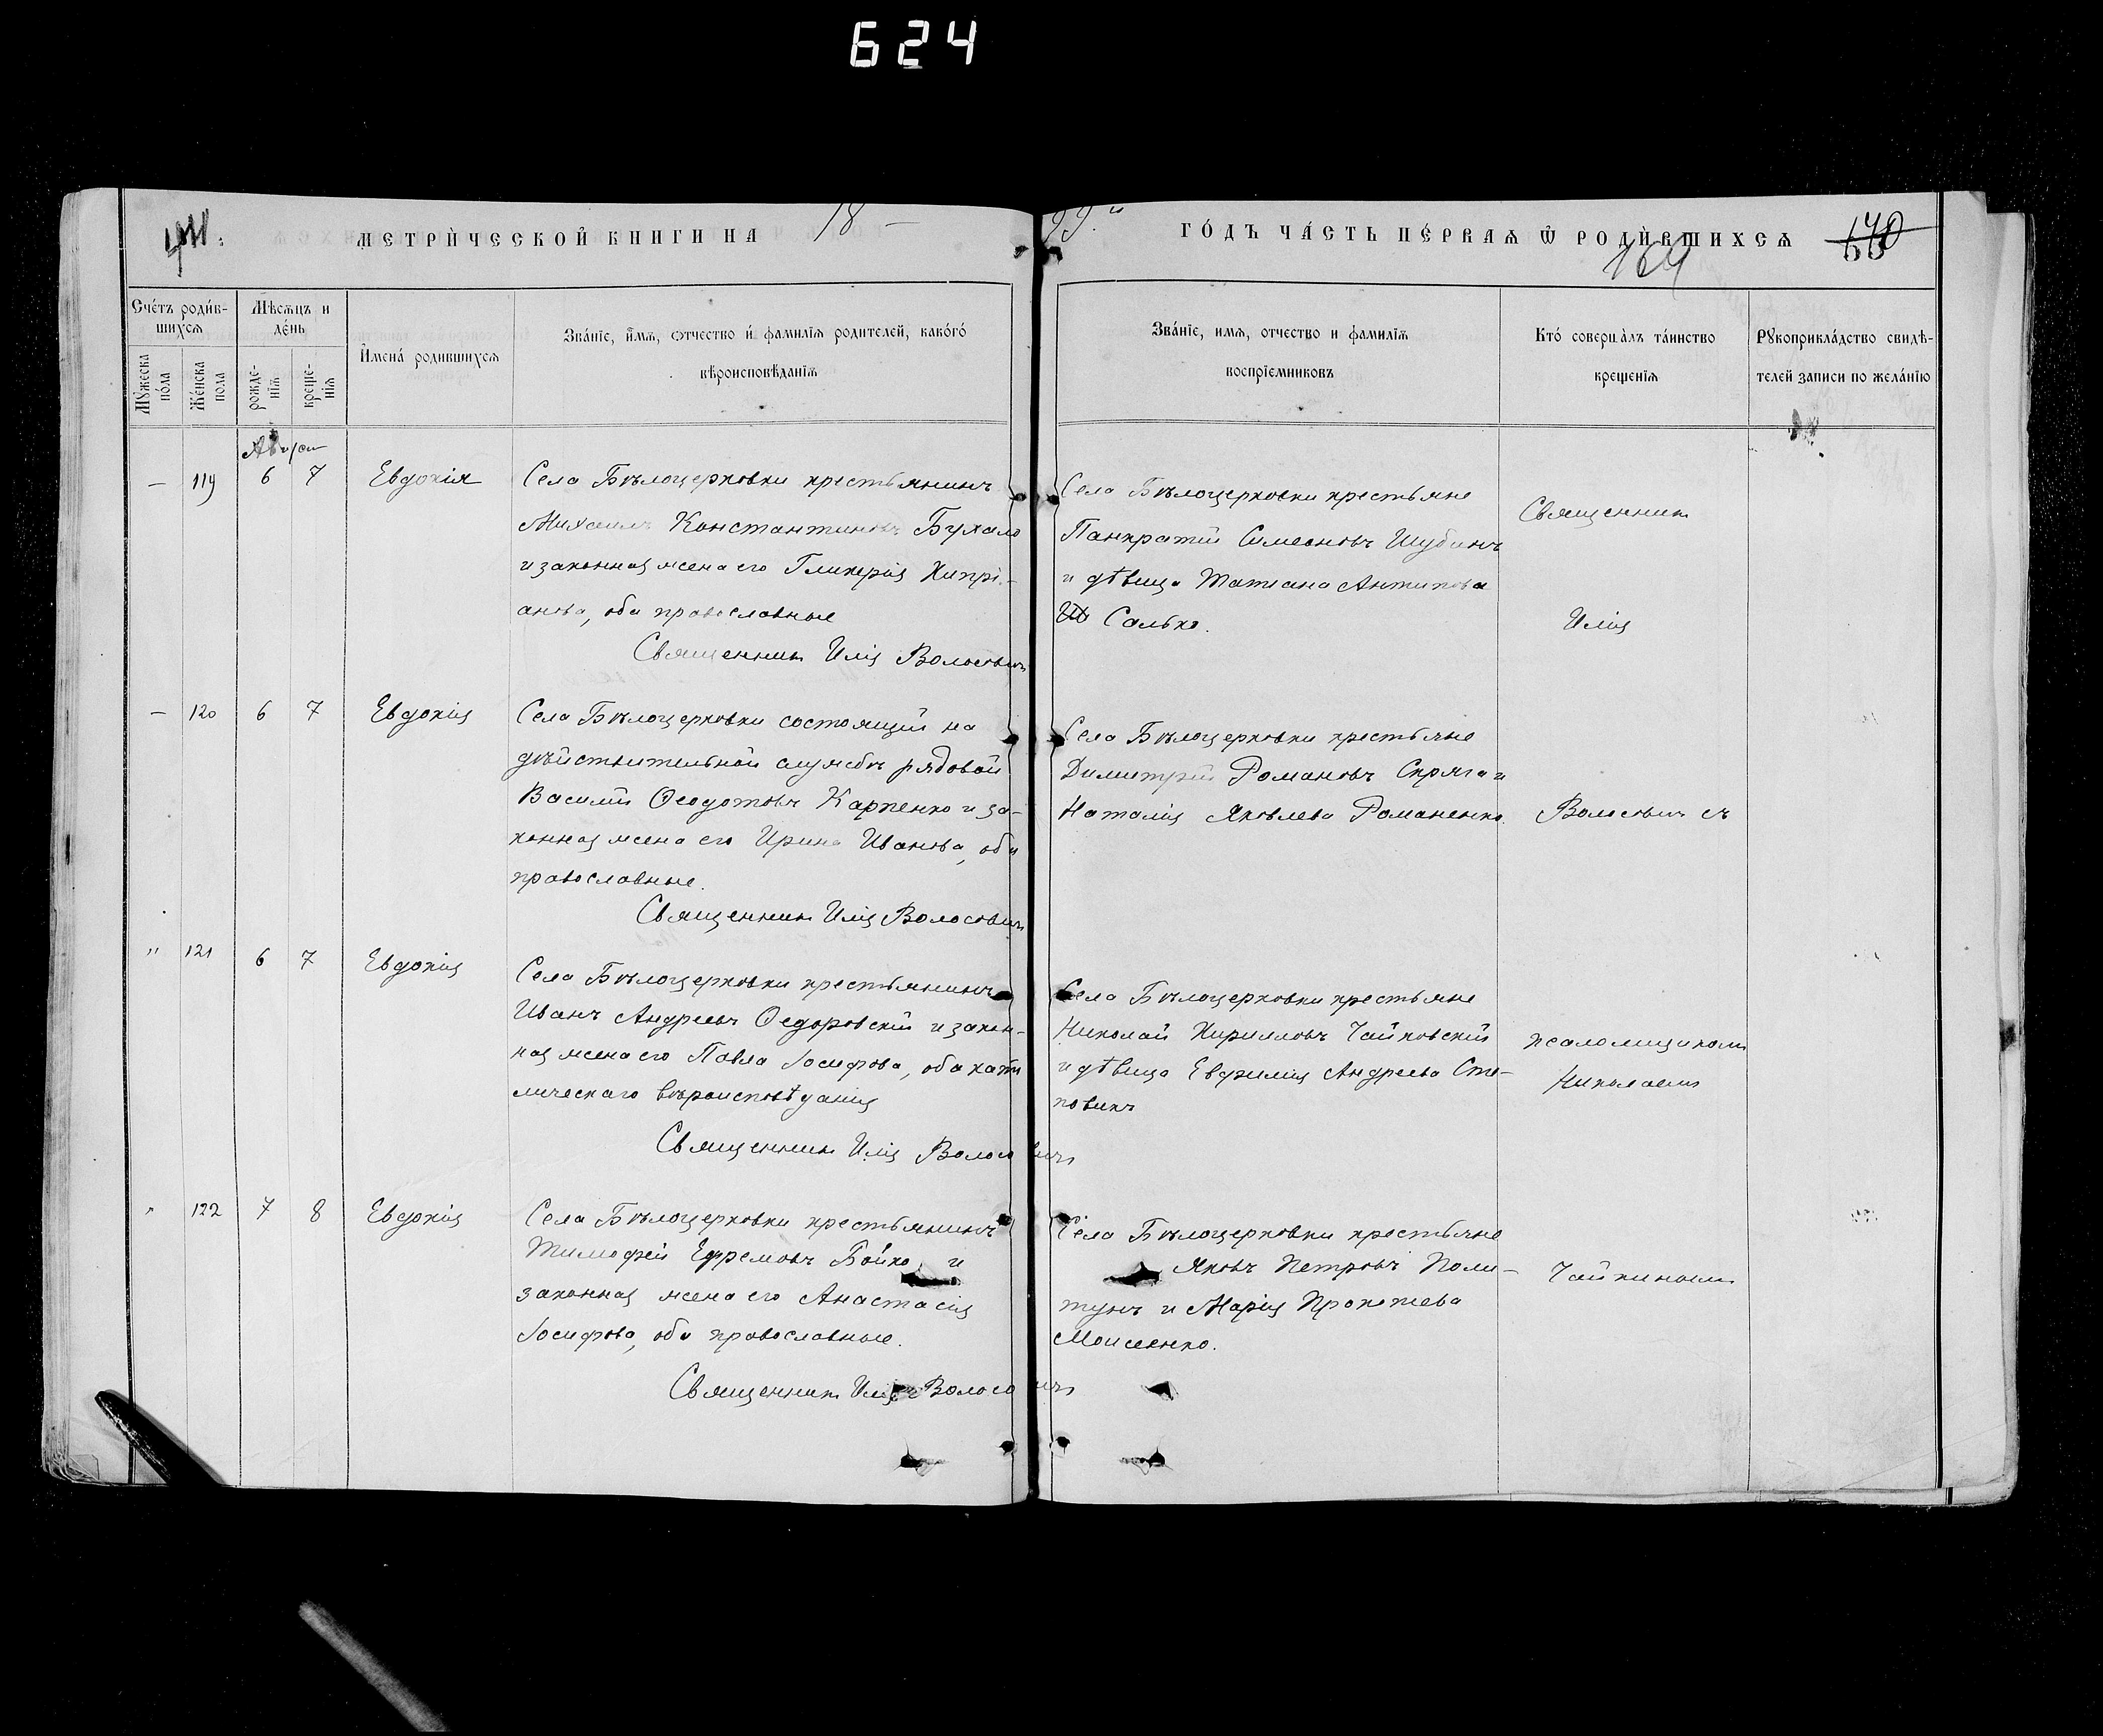 624
МЕТРИ́ЧЕСКОЙ КНИГИ НА 18 —
99 го́дъ ча́сть пе́рваѧ ѡ҆ роди́вшихсѧ
164
Сче́тъ роди́в-
шихсѧ
Мѣсѧцъ и
де́нь
Мꙋ́жеска
по́ла
Же́нска
пола
рожде-
нїѧ
креще-
нїѧ
И҆мена́ родившихсѧ
Зва́нїе, и҆́мѧ, ѻтчество и҆ фамилїѧ родителей, како́гѡ́
вѣроисповѣданїѧ
Зва́нїе, имѧ, отчество и фамилїѧ
воспрїемниковъ
Кто́ соверша́лъ та́инство
крещенїѧ
Рꙋкоприкла́дство свидѣ-
телей записи по жела́нїю
Август
— 119 6 7 Евдокія
Села Бѣлоцерковки крестьянинъ
Михаилъ Константиновъ Бухало
и законная жена его Гликерія Кипрі-
анова, оба православные
Священникъ Илія Волосовичъ
Села Бѣлоцерковки крестьяне
Панкратій Симеоновъ Шубинъ
и дѣвица Татіана Антипова
Салько.
Священникъ
Илія
— 120 6 7 Евдокія
Села Бѣлоцерковки состоящій на
дѣйствительной службѣ рядовой
Василій Ѳеодотовъ Карпенко и за-
конная жена его Ирина Иванова, оба
православные.
Священникъ Илія Волосовичъ
Села Бѣлоцерковки крестьяне
Димитрій Романовъ Скряга и
Наталія Яковлева Романенко.
Волосовичъ съ
" 121 6 7 Евдокія
Села Бѣлоцерковки крестьянинъ
Иванъ Андреевъ Ѳедоровскій и закон-
ная жена его Павла Іосифова, оба като
лическаго вѣроисповѣданія
Священникъ Илія Волосовичъ
Села Бѣлоцерковки крестьяне
Николай Кирилловъ Чайковскій
и дѣвица Евфимія Андреева Сте-
повикъ
псаломщикомъ
Николаемъ
" 122 7 8 Евдокія
Села Бѣлоцерковки крестьянинъ
Тимофей Ефремовъ Бойко и
законная жена его Анастасія
Іосифова, оба православные.
Священникъ Илія Волосовичъ
Села Бѣлоцерковки крестьяне
Яковъ Петровъ Поли-
тунъ и Марія Прокопіева
Моисеенко.
Чайкиномъ